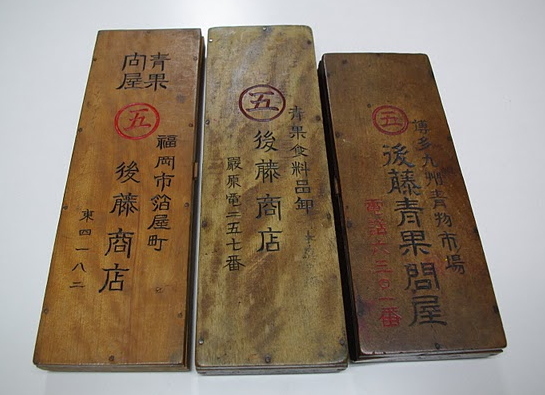 青果
問屋
五
福岡市箔屋町
後藤商店
東四一八二
五
青果食料品卸
後藤商店
厳原電二五七番
五
博多九州青物市場
後藤青果問屋
電話六三〇一番